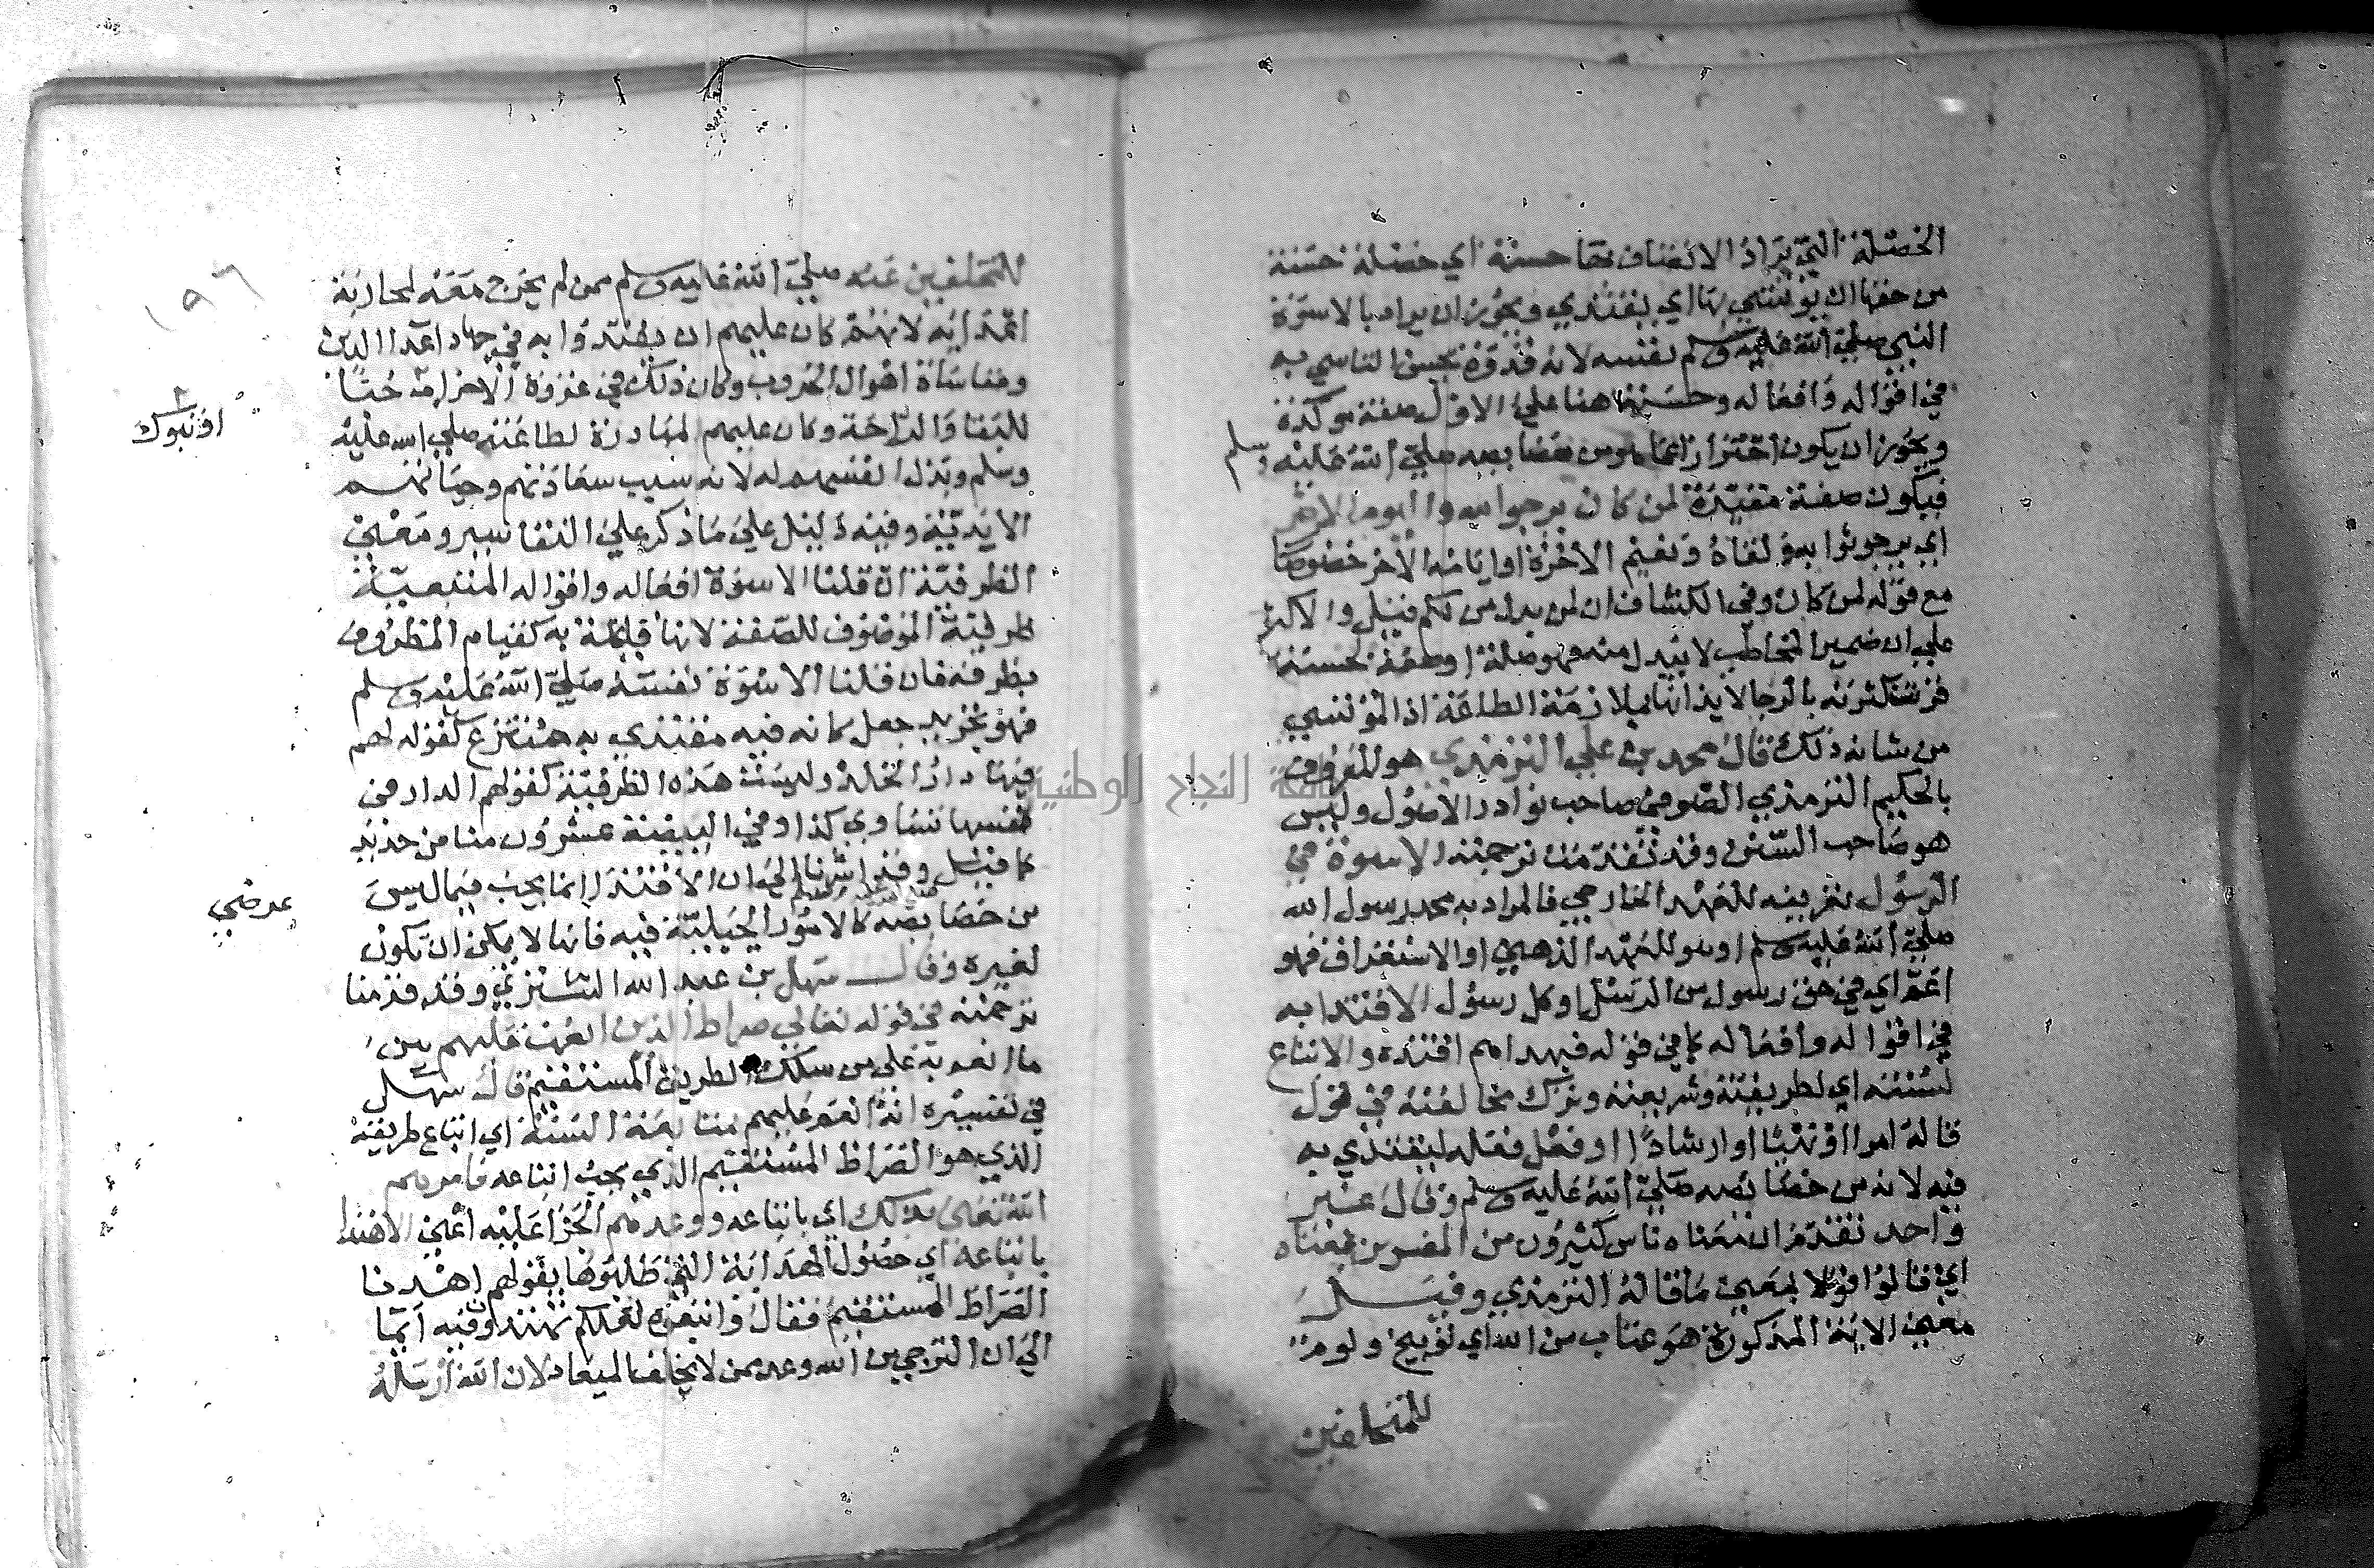 الخصلة التي يراد الاتصاف بها حسنة اي خصلة حسنة
من حقها ان يؤتسي بها اي يقتدي ويجوز ان يراد بالاسوة
النبي صلي الله عليه وسلم نفسه لانه قدوة يحسن التاسي به
في اقواله وافعاله وحسنة هنا علي الاول صفة موكدة
ويجوز ان يكون احترازا عما هو من خصايصه صلي الله عليه وسلم
فيكون صفة مقيدة لمن كان يرجوا الله واليوم الاخر
اي يرجو ثوابه ولقاه ونعيم الاخرة او ايام الله الاخر خصوصا
مع قوله لمن كان وفي الكشاف ان لمن بدل من لكم قيل والاكثر
علي ان ضمير المخاطب لا يبدل منه فهو صلة او صفة لحسنة
قرنت كثرته بالرجا لايذانها بملازمة الطاعة اذ المؤتسي
من شانه ذلك قال محمد بن علي الترمذي هو المعروف
بالحكيم الترمذي الصوفي صاحب نوادر الاصول وليس
هو صاحب السنن وقد تقدمت ترجمته الاسوة في
الرسول تعريفه للعهد الخارجي فالمراد به محمد رسول الله
صلي الله عليه وسلم او هو للعهد الذهني او الاستغراق فهو
اعم اي في حق رسول من الرسل او كل رسول الاقتدا به
في اقواله وافعاله كما في قوله فبهداهم اقتده والاتباع
لسنته اي لطريقته وشريعته وترك مخالفته في قول
قاله امرا او نهيا او ارشادا او فعل فعله ليقتدي به
فيه لانه من خصايصه صلي الله عليه وسلم وقال غير
واحد تقدم ان معناه ناس كثيرون من المفسرين بمعناه
اي قالوا قولا بمعني ما قاله الترمذي وقيل
معني الاية المذكورة هو عتاب من الله اي توبيخ ولوم
للمتخلفين
١٩٦
للمتخلفين عنه صلي الله عليه وسلم ممن لم يخرج معه لمحاربة
اعدايه لانهم كان عليهم ان يقتدوا به في جهاد اعدا الدين
ومقاساة اهوال الحروب وكان ذلك في غزوة الاحزاب حبا
او تبوك
للبقا والراحة وكان عليهم المبادرة لطاعته صلي الله عليه
وسلم وبذل انفسهم له لانه سبب سعادتهم وحياتهم
الابدية وفيه دليل علي ما ذكر علي التفاسير ومعني
الظرفية ان قلنا الاسوة افعاله واقواله المتبعية
ظرفية الموصوف للصفة لانها قايمة به كقيام المظروف
بظرفه فان قلنا الاسوة نفسه صلي الله عليه وسلم
فهو تجريد جعل كانه فيه مقتدي به منتزع كقوله لهم
فيها دار الخلد وليست هذه الظرفية كقولهم الدار في
نفسها تساوي كذا وفي البيضة عشرون منا من حديد
كما قيل وقد اشرنا الي ان الاقتدا انما يجب فيما ليس
من خصايصه كالامور الجبلية فيه فانها لا يمكن ان تكون
لغيره وقال سهل بن عبد الله التستري وقد قدمنا
ترجمته في قوله تعالي صراط الذين انعمت عليهم من
ما انعم به علي من سلك الطريق المستقيم قال سهل
في تفسيره انه انعم عليهم بمتابعة السنة اي اتباع طريقته
الذي هو الصراط المستقيم الذي يجب اتباعه فامرهم
الله تعالي بذلك اي باتباعه ووعدهم الجزا عليه اعني الاهتدا
باتباعه اي حصول الهداية التي طلبوها بقولهم اهدنا
الصراط المستقيم فقال واتبعوه لعلكم تهتدون وفيه ايما
الي ان الترجي من الله وعد ممن لا يخلف الميعاد لان الله ارسله
جامعة النجاح الوطنية